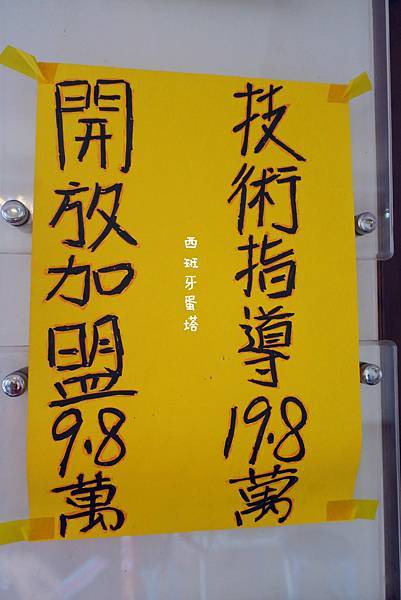 技術指導19.8萬
西班牙蛋塔
開放加盟9.8萬